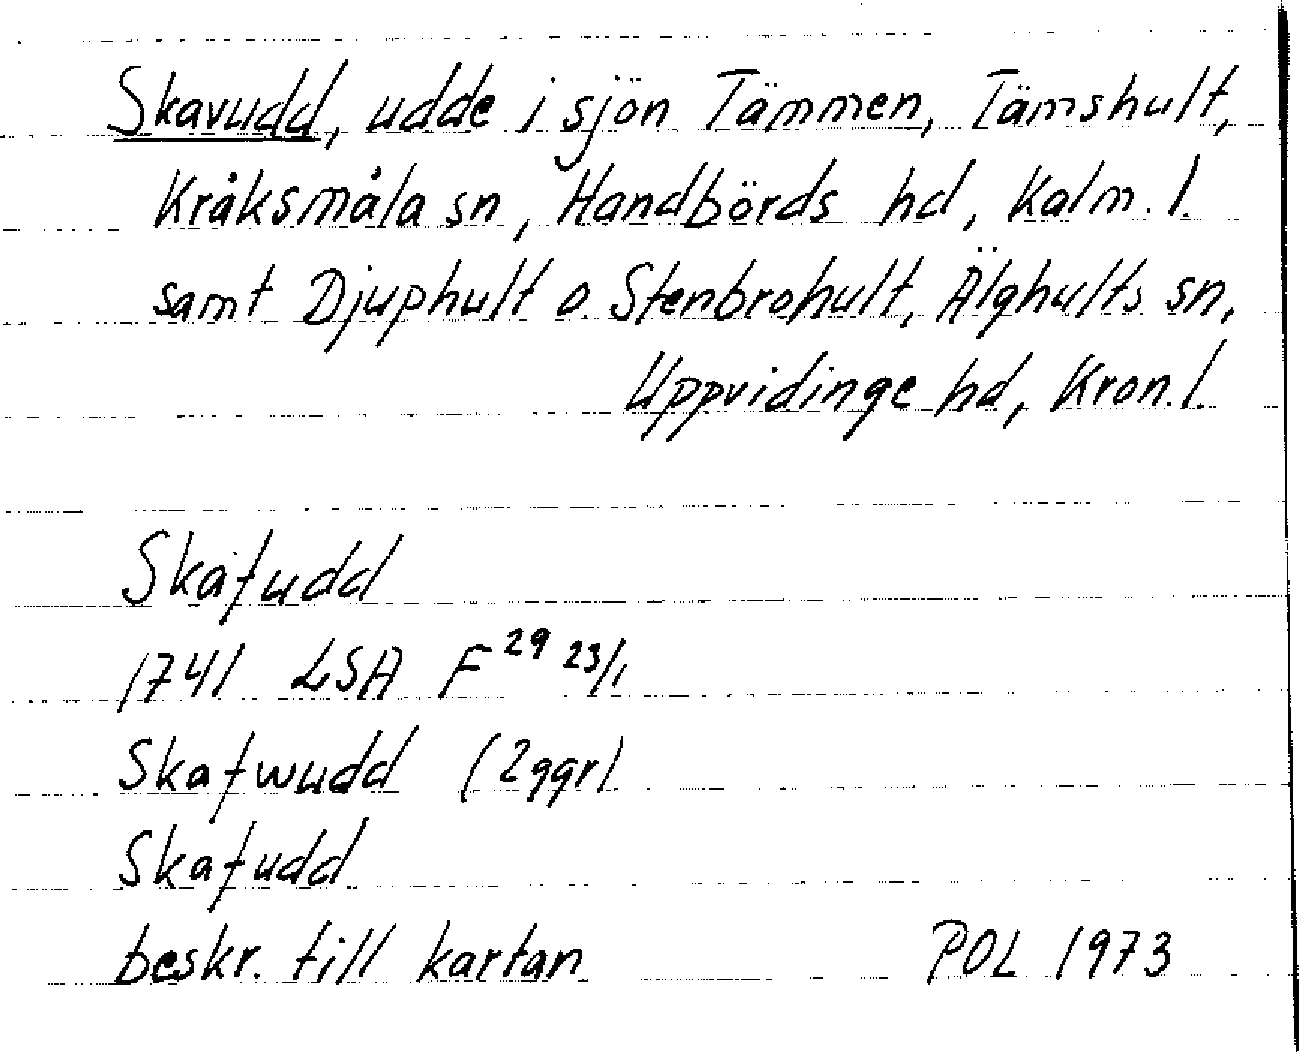 Skavudd, udde i sjön Tämmen, Tämshult,
Kråksmåla sn, Handbörds hd, Kalm. l.
samt Djuphult o Stenbrohult, Älghults sn,
Uppvidinge hd, Kron. l.
Skafudd
1741 LSA F 29 23/1
Skafwudd (2ggr)
Skafudd
beskr. till kartan POL 1973